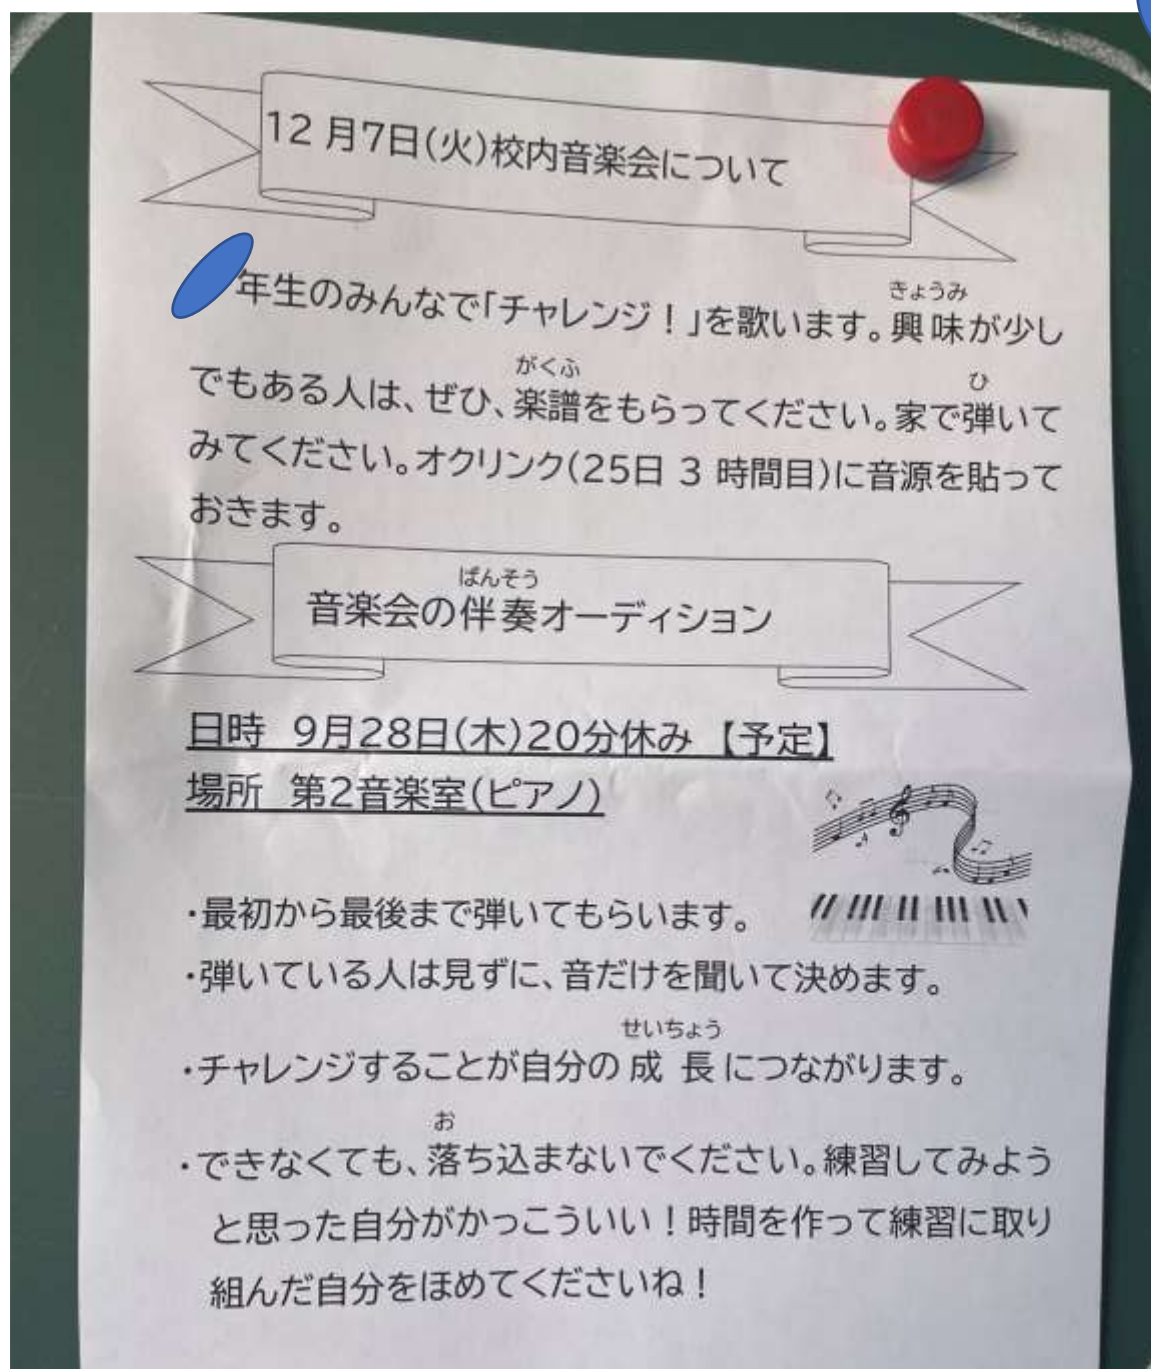 12月7日(火)校内音楽会について
年生のみんなで「チャレンジ！」を歌います。興味が少し
きょうみ
でもある人は、ぜひ、楽譜をもらってください。家で弾いて
がくふ
ひ
みてください。オクリンク(25日 3 時間目)に音源を貼って
おきます。
ばんそう
音楽会の伴奏オーディション
日時 9月28日(木)20分休み 【予定】
場所 第2音楽室(ピアノ)
・最初から最後まで弾いてもらいます。
・弾いている人は見ずに、音だけを聞いて決めます。
せいちょう
・チャレンジすることが自分の成長につながります。
お
・できなくても、落ち込まないでください。練習してみよう
と思った自分がかっこういい！時間を作って練習に取り
組んだ自分をほめてくださいね！